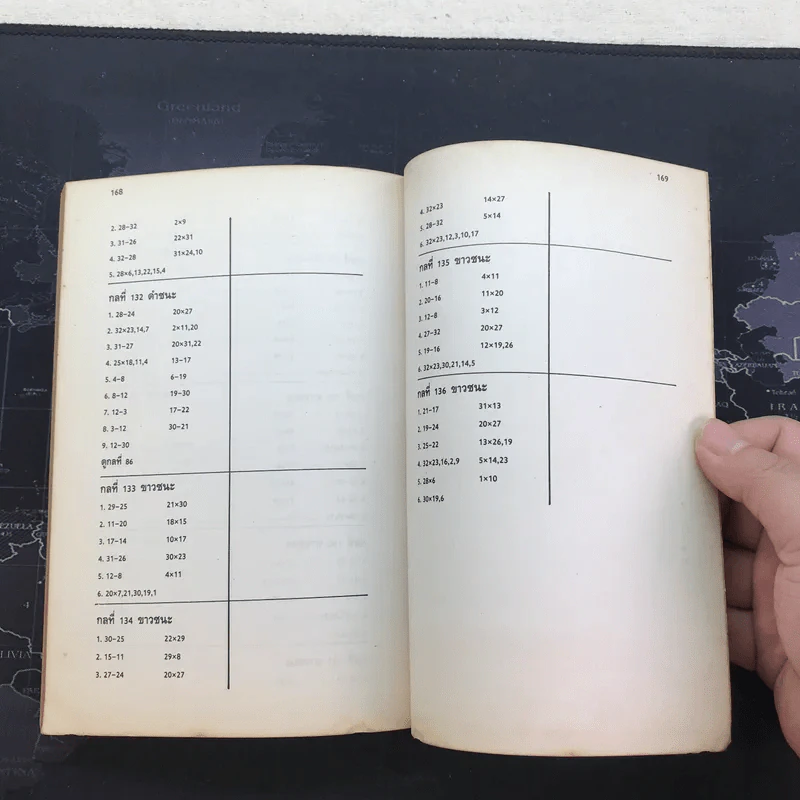 168
2. 28-32 2×9
3. 31-26 22×31
4. 32-28 31×24,10
5. 28×6,13,22,15,4
กลที่ 132 ดำชนะ
1. 28-24 20×27
2. 32×23,14,7 2×11,20
3. 31-27 20×31,22
4. 25×18,11,4 13-17
5. 4-8 6-19
6. 8-12 19-30
7. 12-3 17-22
8. 3-12 30-21
9. 12-30
ดูกลที่ 86
กลที่ 133 ขาวชนะ
1. 29-25 21×30
2. 11-20 18×15
3. 17-14 10×17
4. 31-26 30×23
5. 12-8 4×11
6. 20×7,21,30,19,1
กลที่ 134 ขาวชนะ
1. 30-25 22×29
2. 15-11 29×8
3. 27-24 20×27
169
4. 32×23 14×27
5. 28-32 5×14
6. 32×23,12,3,10,17
กลที่ 135 ขาวชนะ
1. 11-8 4×11
2. 20-16 11×20
3. 12-8 3×12
4. 27-32 20×27
5. 19-16 12×19,26
6. 32×23,30,21,14,5
กลที่ 136 ขาวชนะ
1. 21-17 31×13
2. 19-24 20×27
3. 25-22 13×26,19
4. 32×23,16,2,9 5×14,23
5. 28×6 1×10
6. 30×19,6
Greenland